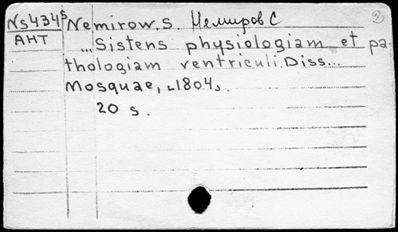 Ns434s Nemirow, S. Немиров С 2
АНТ
...Sistens physiologiam et pa-
thologiam ventriculi. Diss...
Mosquae, ˪1804˼.
20 s.